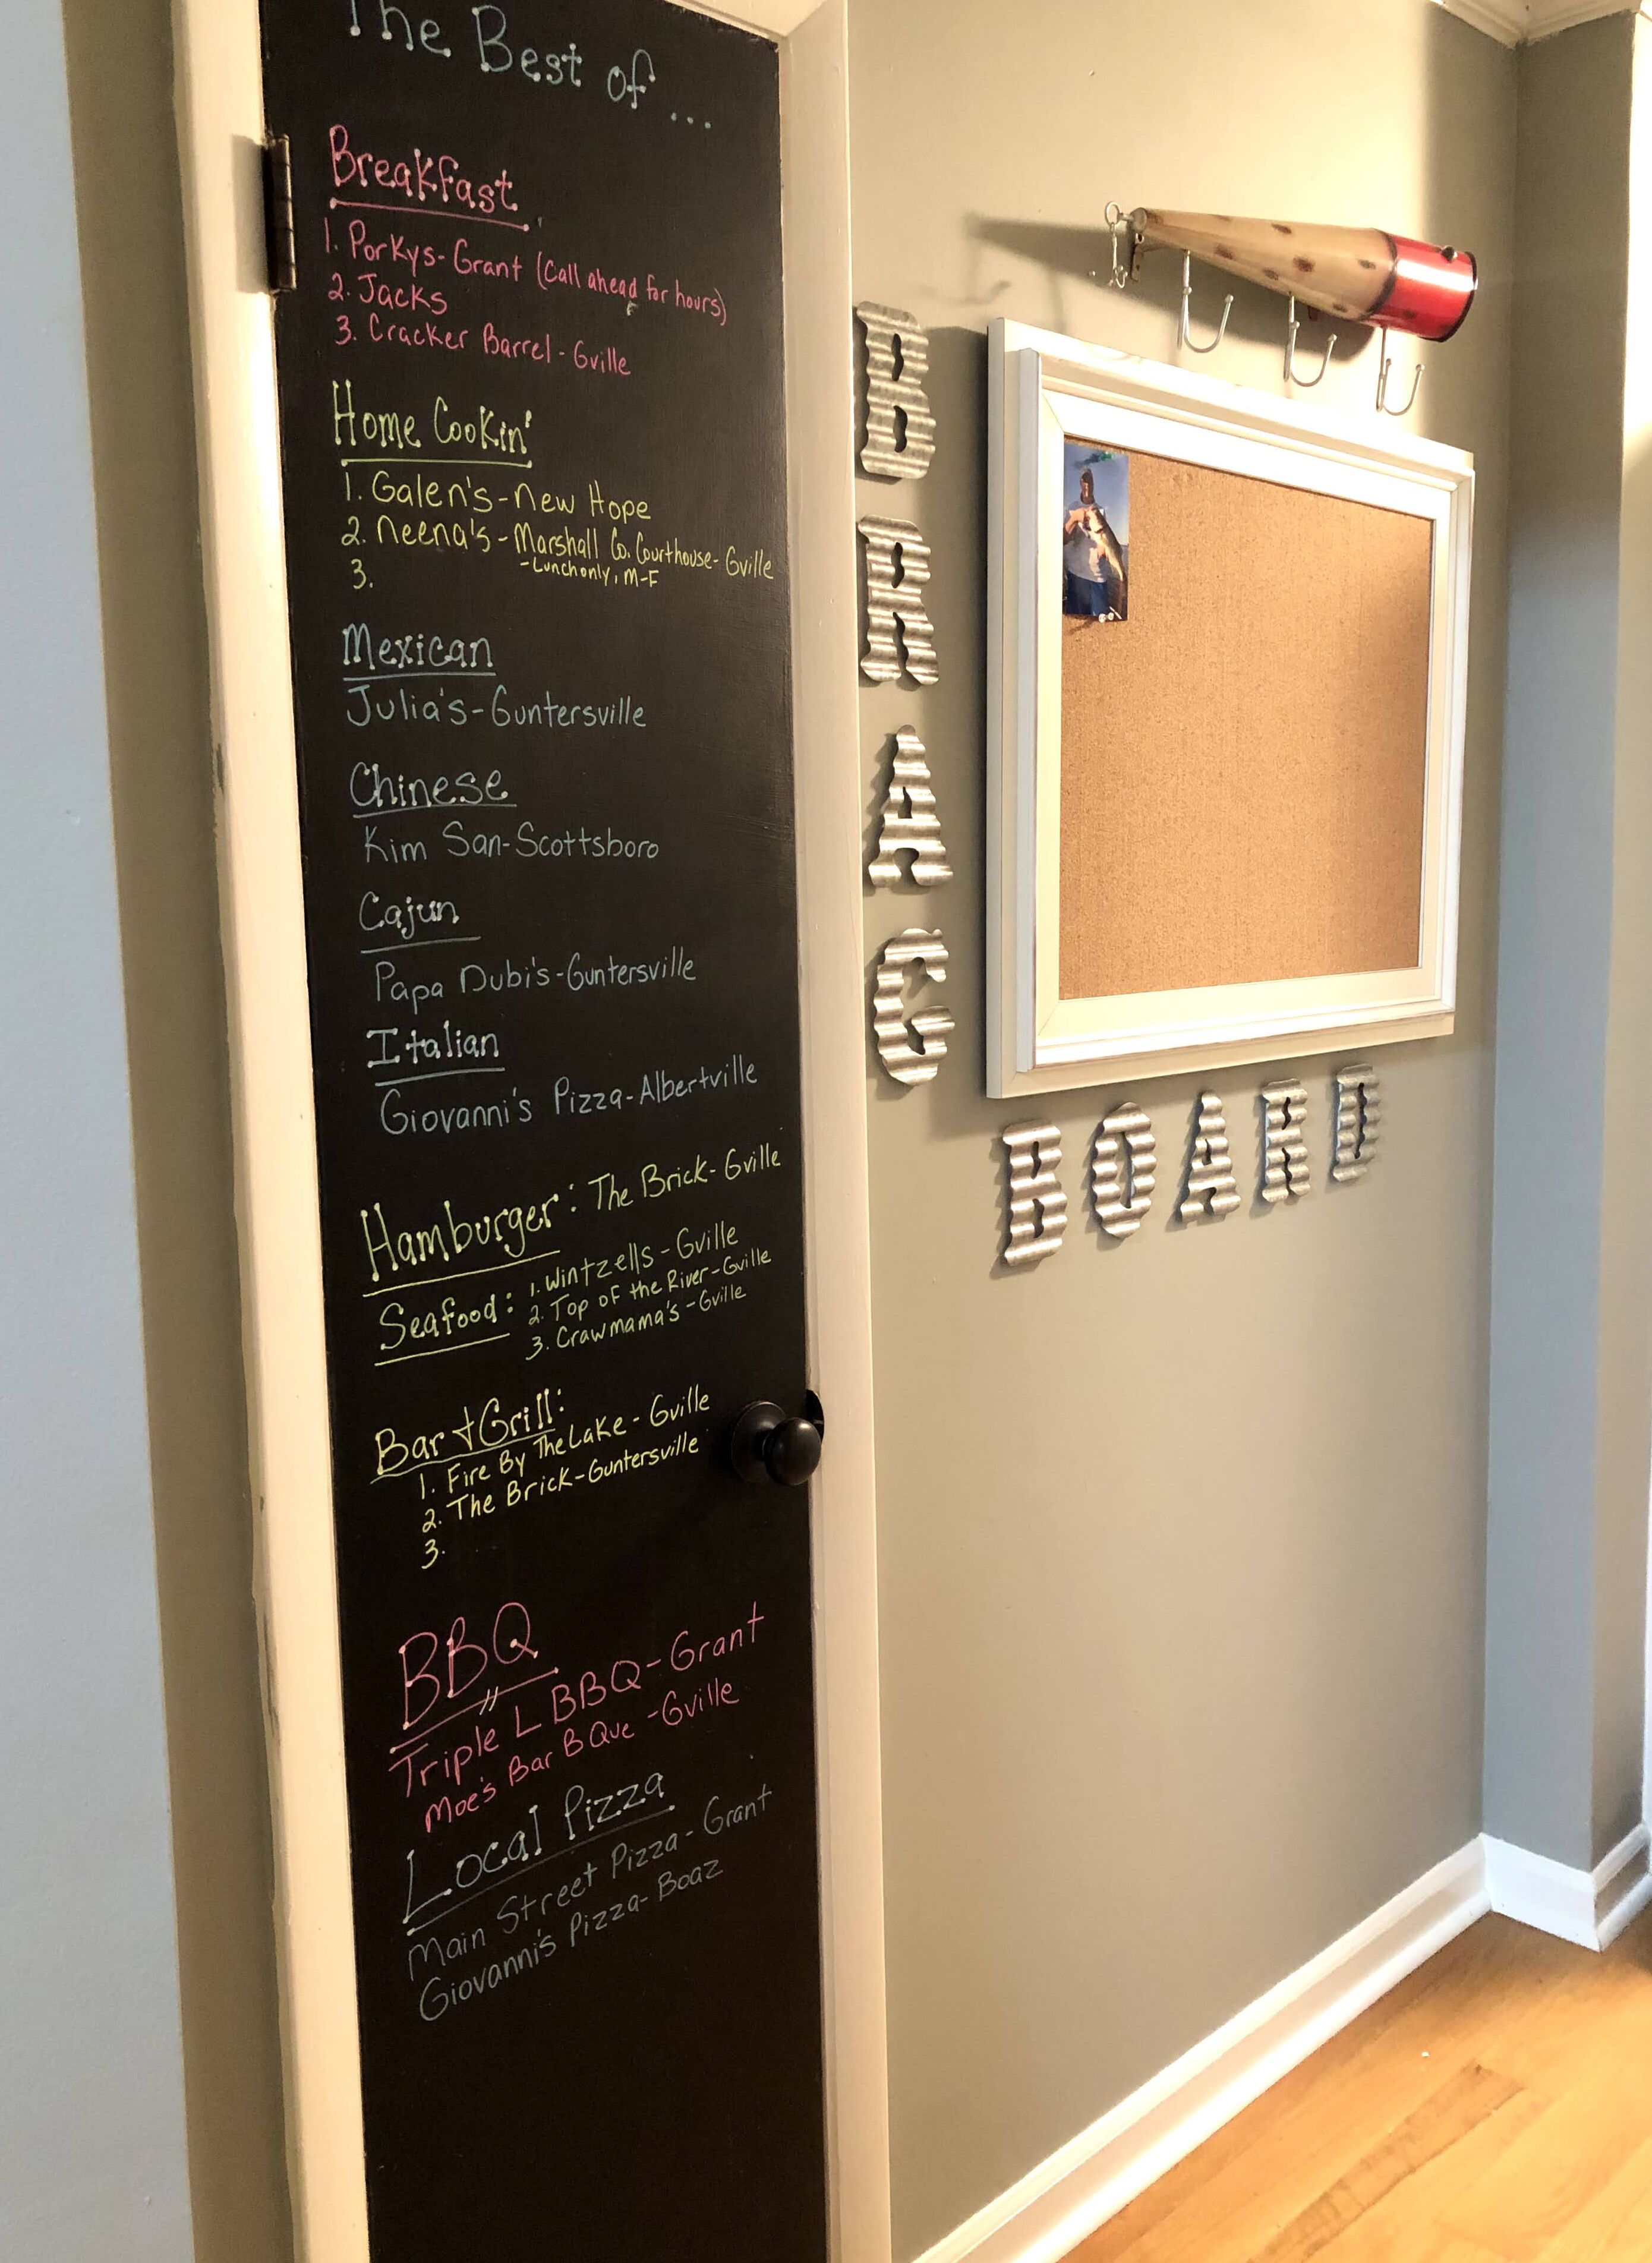 The Best of ...
Breakfast
1. Porkys-Grant (Call ahead for hours)
2. Jacks
3. Cracker Barrel - Gville
Home Cookin'
1. Galen's - New Hope
2. Neena's - Marshall Co. Courthouse - Gville
- Lunch only, M-F
3.
Mexican
Julia's - Guntersville
Chinese
Kim San - Scottsboro
Cajun
Papa Dubi's - Guntersville
Italian
Giovanni's Pizza - Albertville
Hamburger: The Brick - Gville
Seafood: 1. Wintzells - Gville
2. Top of the River - Gville
3. Crawmama's - Gville
Bar & Grill:
1. Fire By The Lake - Gville
2. The Brick - Guntersville
3.
BBQ
Triple L BBQ - Grant
Moe's Bar B Que - Gville
Local Pizza
Main Street Pizza - Grant
Giovanni's Pizza - Boaz
BRAG
BOARD